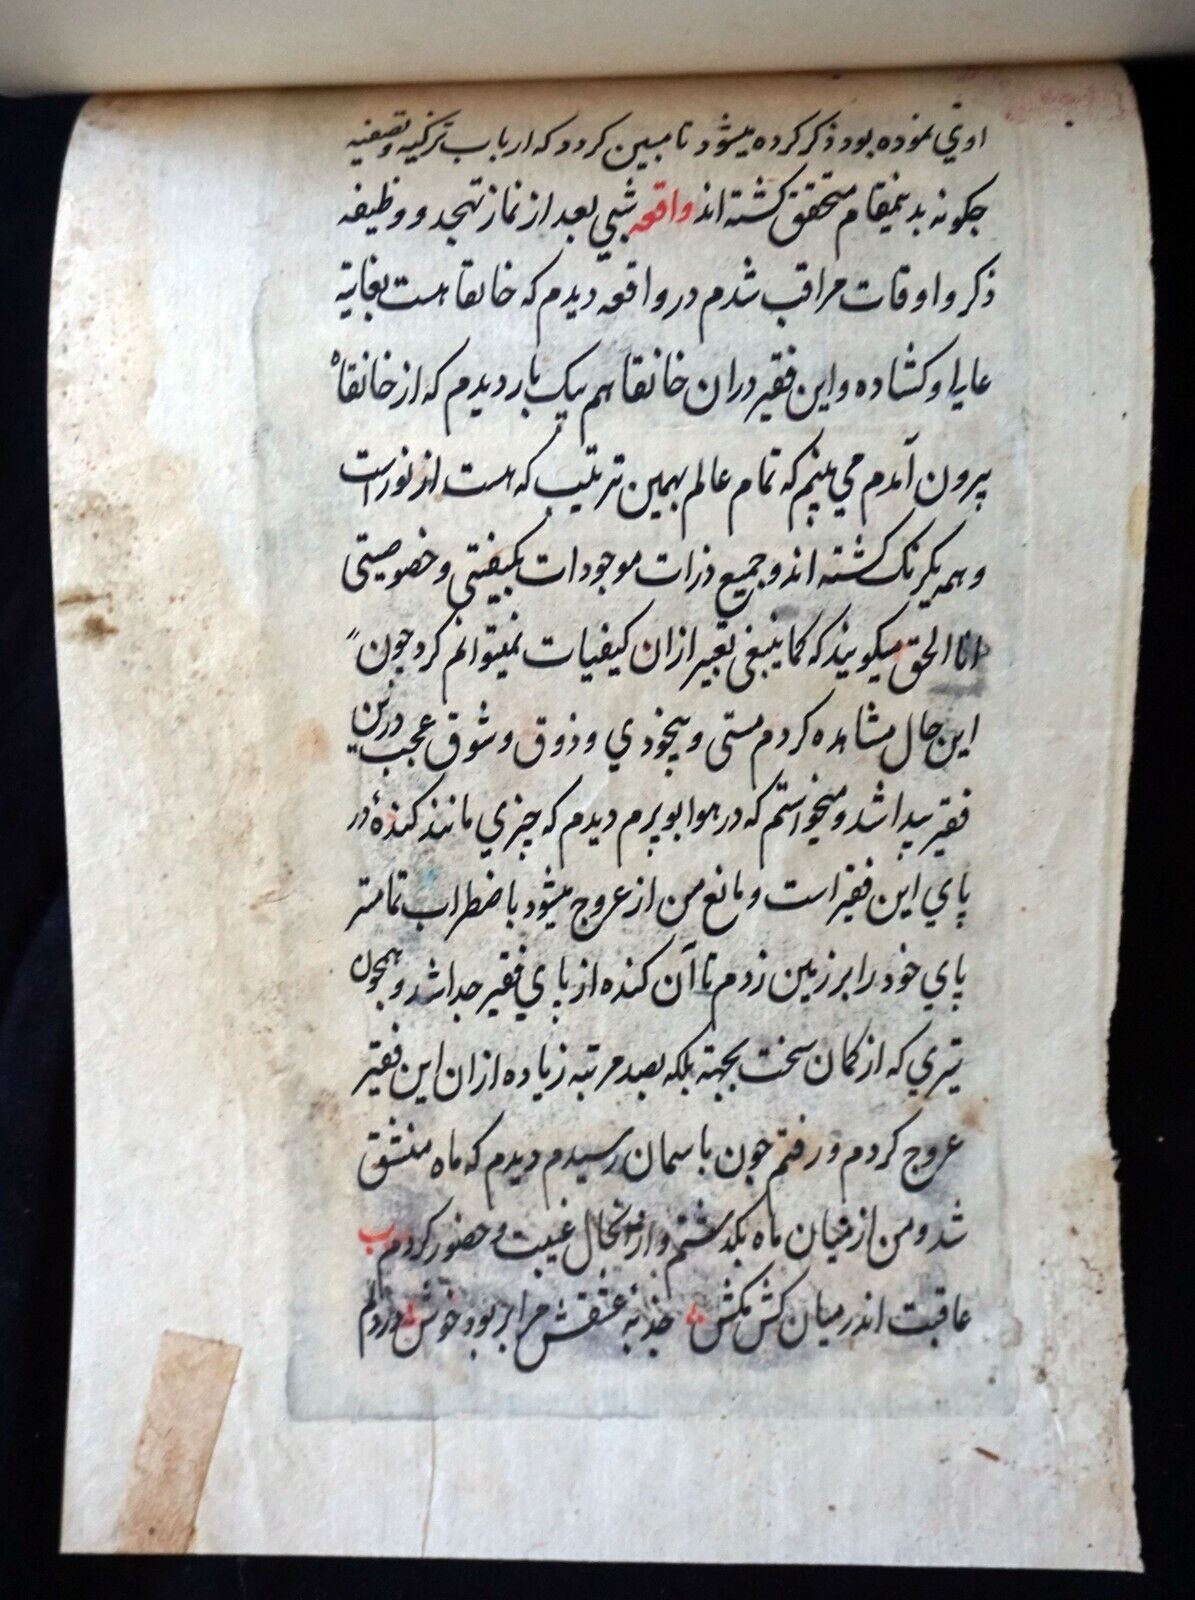 اوتي نموده بود ذکر کرده میشود تا مبین کردد که ارباب تزکیه و تصفیه
جکونه بدینمقام متحقق کشته اند واقعه شبی بعد از نماز تهجد و وظیفه
ذکر و اوقات مراقب شدم در واقعه دیدم که خانقاهست بغایة
عالي و کشاده و این فقیر دران خانقاهم یک بار دیدم که از خانقاه
بیرون آمدم می بینم که تمام عالم بهمین ترتیب که هست از نور است
و همه یکرنک کشته اند و جمیع ذرات موجودات بکیفیتی و خصوصیتی
انا الحق میکویند که کما ینبغی تعبیر ازان کیفیات نمیتوانم کرد جون
این حال مشاهده کردم مستی و بیخودي و ذوق و شوق عجب درین
فقیر پیدا شد و میخواستم که در هوا بپرم دیدم که چیزي مانند کندۀ در
پاي این فقیر است و مانع من از عروج میشود باضطراب تمامتر
پاي خود را بر زمین زدم تا آن کنده از پاي فقیر جدا شد و همچون
تیري که از کمان سخت بجهد بلکه بصد مرتبه زیاده ازان این فقیر
عروج کردم و رفتم جون باسمان رسیدم دیدم که ماه منشق
شد و من از میان ماه بکذشتم و ازانحال غیبت و حضور کردم ب
عاقبت اندر میان کش مکش جذبۀ عشقش مرا بربود خوش در دلم